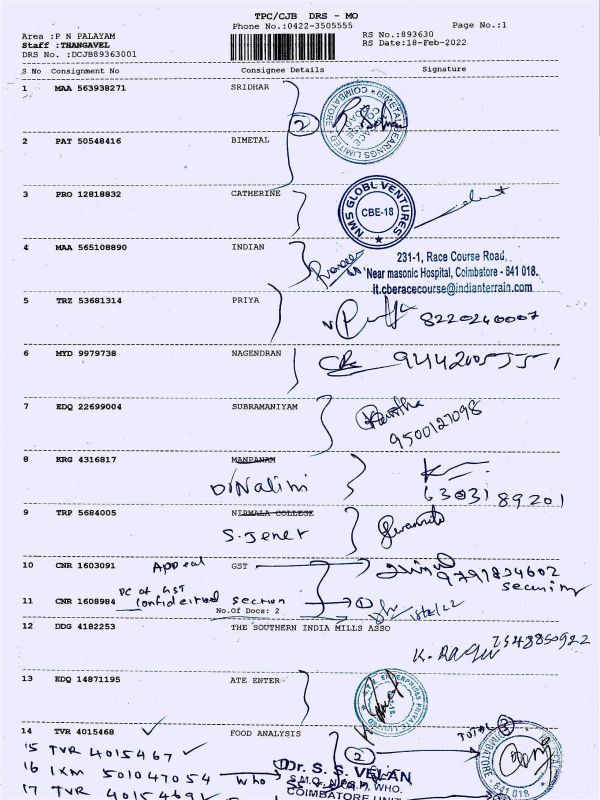 TPC/CJB DRS - MO
Phone No.:0422-3505555 Page No.:1
Area :P N PALAYAM RS No.:893630
Staff :THANGAVEL RS Date:18-Feb-2022
DRS No. :DCJB89363001
S No Consignment No Consignee Details Signature
1 MAA 563938271 SRIDHAR
BIMETAL BEARINGS LIMITED
COIMBATORE
2
2 PAT 50548416 BIMETAL
3 PRO 12818832 CATHERINE
NMS GLOBL VENTURES
CBE-18
4 MAA 565108890 INDIAN
231-1, Race Course Road,
Near masonic Hospital, Coimbatore - 641 018.
it.cberacecourse@indianterrain.com
5 TRZ 53681314 PRIYA
8220240007
6 MYD 9979738 NAGENDRAN
7 EDQ 22699004 SUBRAMANIYAM
9500127098
8 KRG 4316817 MANPANAM
D/Nalini
6303189201
9 TRP 5684005 NIRMALA COLLEGE
S. Jenet
10 CNR 1603091 Appeal GST
9791824602
Security
11 CNR 1608984 DC of GST
Confidential section 1
No.Of Docs: 2
12 DDG 4182253 THE SOUTHERN INDIA MILLS ASSO
K. Ragu
13 EDQ 14871195 ATE ENTER
14 TVR 4015468 FOOD ANALYSIS
TOTAL 3
15 TVR 4015467 2
16 IXM 501047054 WHO
Dr. S. S. VELAN
WHO.
COIMBATORE UNIT
17 TVR 4015469
641 018